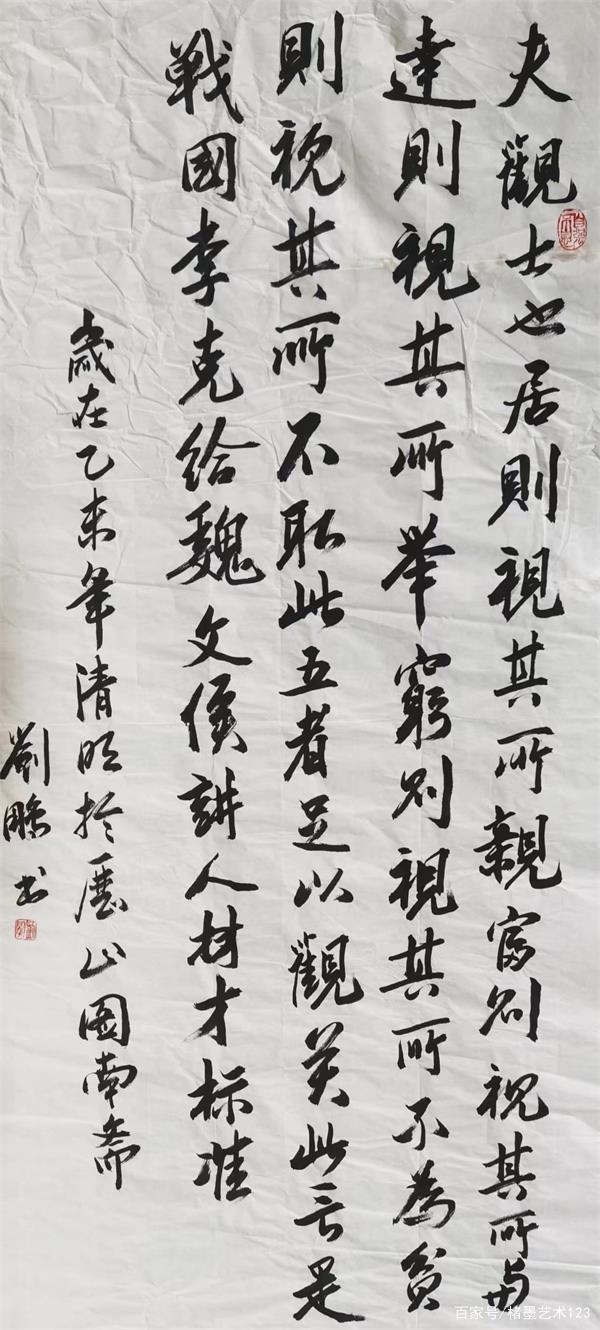 夫觀士也居則視其所親富则視其所与
達則視其所举窮则視其所不為貧
則視其所不取此五者足以觀矣此言是
戰國李克给魏文侯講人材才标准
歲在乙未年清明於歷山園南斋
劉鵬书
百家号/楮墨艺术123